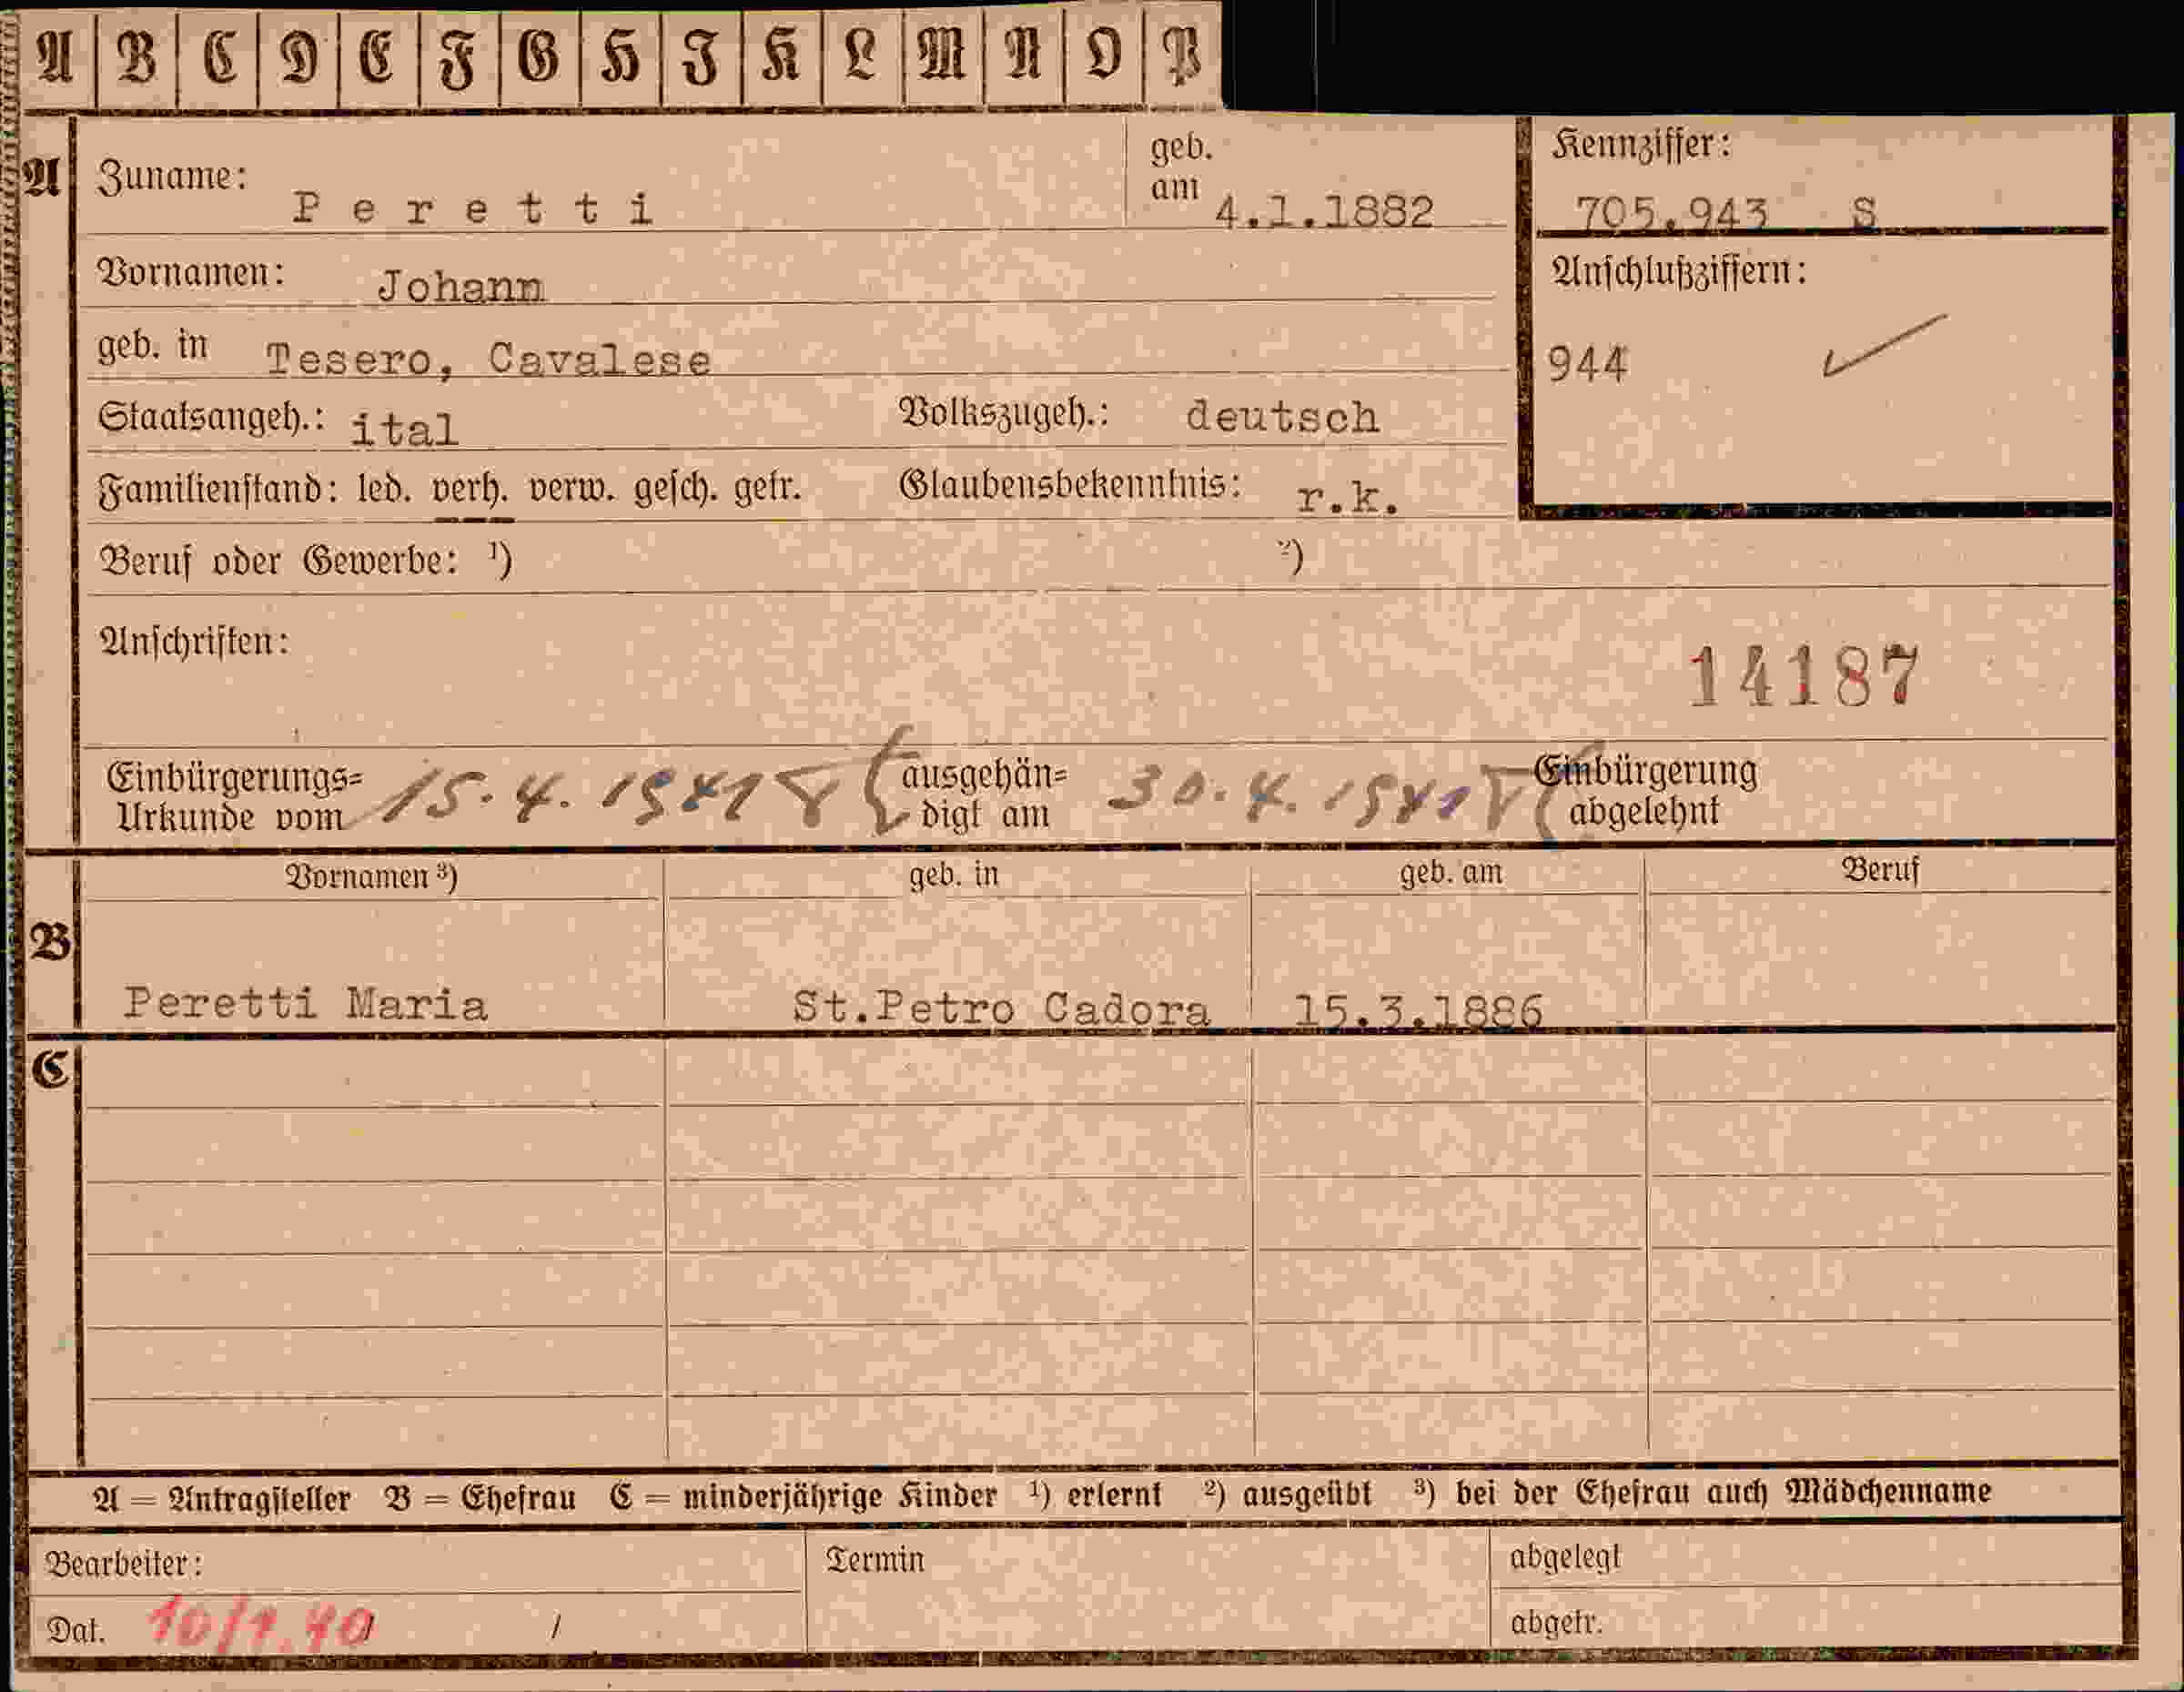 A B C D E F G H I K L M N O P
A Zuname: Peretti geb. am 4.1.1882 Kennziffer: 705.943 S
Vornamen: Johann Anschlußziffern:
geb. in Tesero, Cavalese 944
Staatsangeh.: ital Volkszugeh.: deutsch
Familienstand: led. verh. verw. gesch. getr. Glaubensbekenntnis: r.k.
Beruf oder Gewerbe: ¹) ²)
Anschriften:
14187
Einbürgerungs= ausgehän= Einbürgerung
Urkunde vom 15.4.1941 digt am 30.4.1941 abgelehnt
Vornamen ³) geb. in geb. am Beruf
B
Peretti Maria St.Petro Cadora 15.3.1886
C
A = Antragsteller B = Ehefrau C = minderjährige Kinder ¹) erlernt ²) ausgeübt ³) bei der Ehefrau auch Mädchenname
Bearbeiter: Termin abgelegt
Dat. 10/1.40 / abgetr.